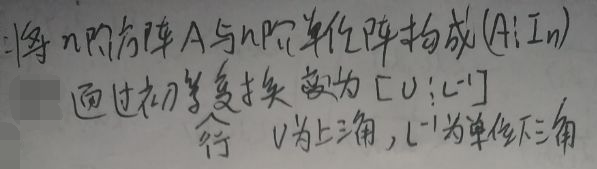 :将n阶方阵A与n阶单位阵构成(A⋮In)
通过初等变换变为[U⋮L⁻¹]
行 U为上三角,L⁻¹为单位下三角